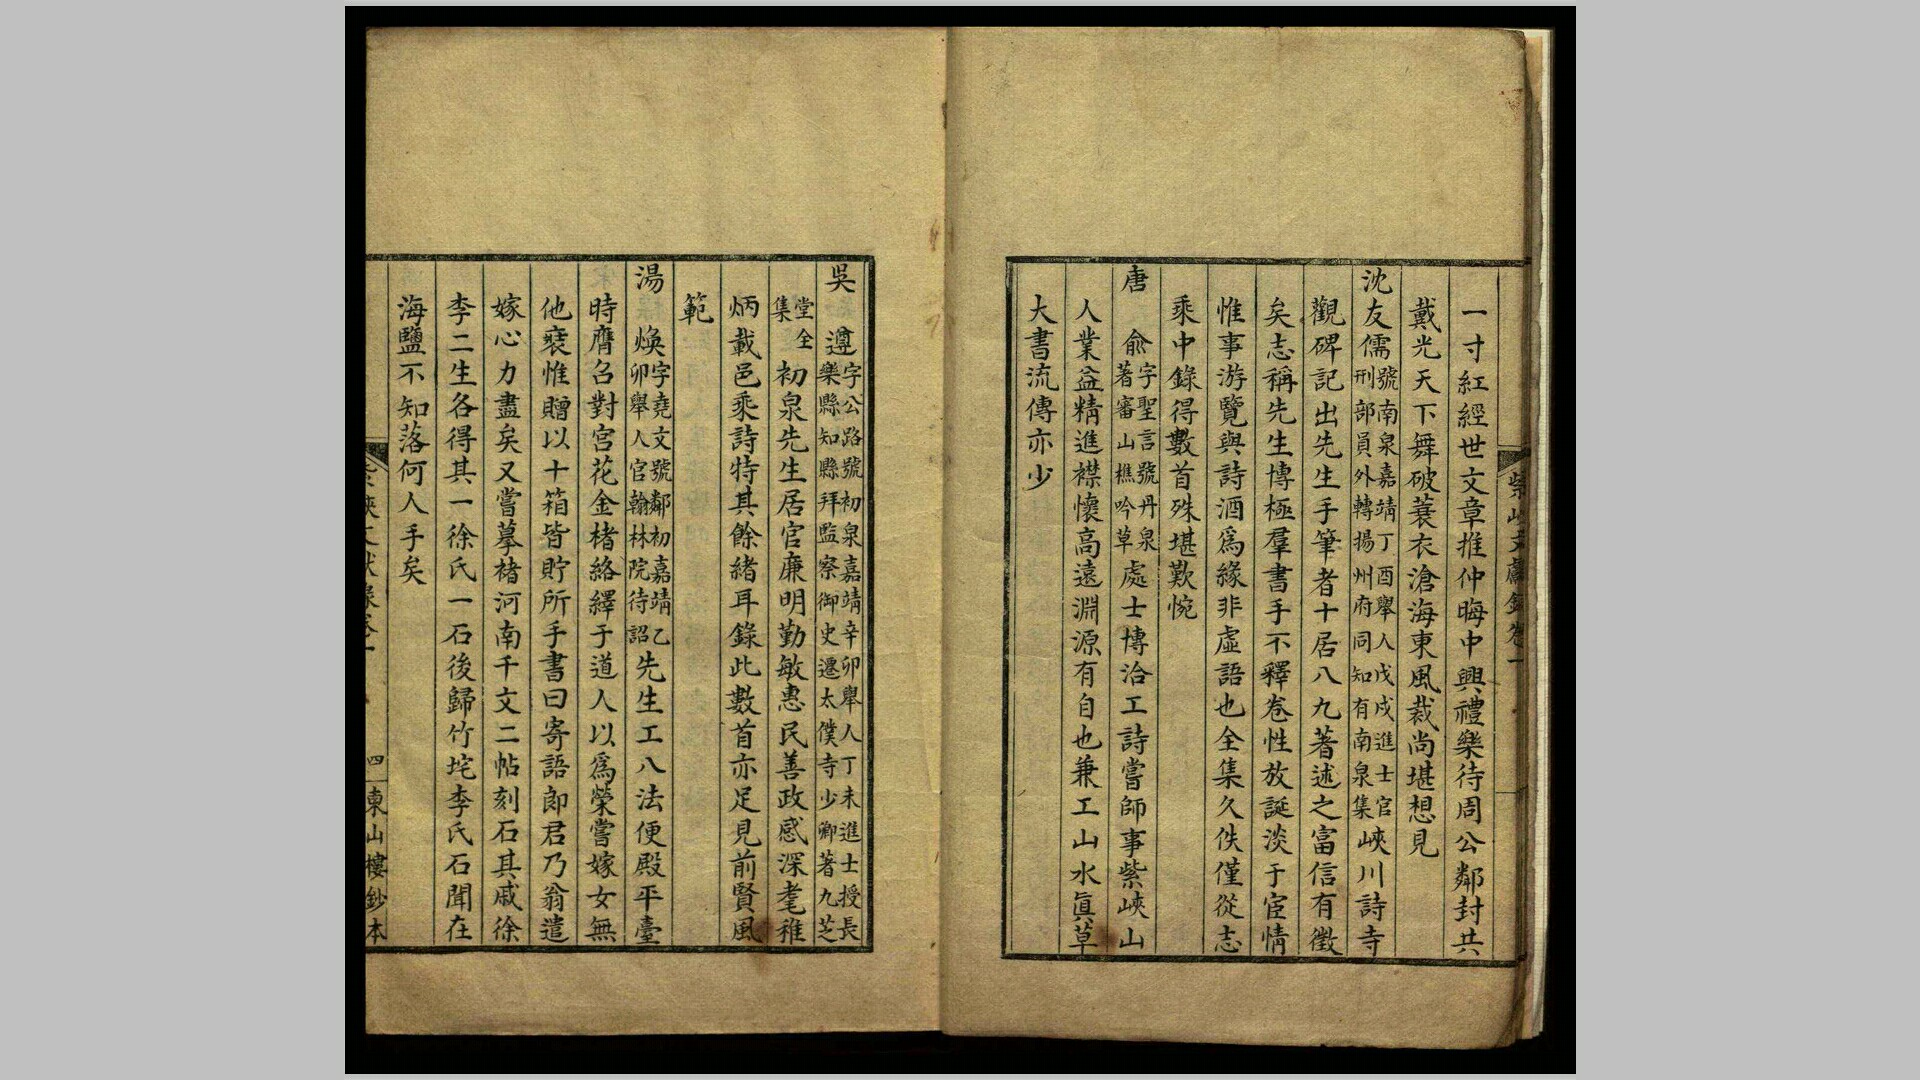 一寸紅經世文章推仲晦中興禮樂待周公鄰封共
戴光天下舞破蓑衣滄海東風裁尚堪想見
沈友儒號南泉嘉靖丁酉舉人戊戌進士官刑部員外轉揚州府同知有南泉集峽川詩寺
觀碑記出先生手筆者十居八九著述之富信有徵
矣志稱先生博極羣書手不釋卷性放誕淡于宦情
惟事游覽與詩酒爲緣非虛語也全集久佚僅從志
乘中錄得數首殊堪歎惋
唐俞字聖言號丹泉著審山樵吟草處士博洽工詩嘗師事紫峽山
人業益精進襟懷高遠淵源有自也兼工山水眞草
大書流傳亦少
吳遵字公路號初泉嘉靖辛卯舉人丁未進士授長樂縣知縣拜監察御史遷太僕寺少卿著九芝
堂全集初泉先生居官廉明勤敏惠民善政感深耄稚
炳載邑乘詩特其餘緒耳錄此數首亦足見前賢風
範
湯煥字堯文號鄰初嘉靖乙卯舉人官翰林院待詔先生工八法便殿平臺
時膺召對宮花金楮絡繹于道人以爲榮嘗嫁女無
他裝惟贈以十箱皆貯所手書曰寄語郎君乃翁遣
嫁心力盡矣又嘗摹褚河南千文二帖刻石其戚徐
李二生各得其一徐氏一石後歸竹垞李氏石聞在
海鹽不知落何人手矣
四
東山樓鈔本